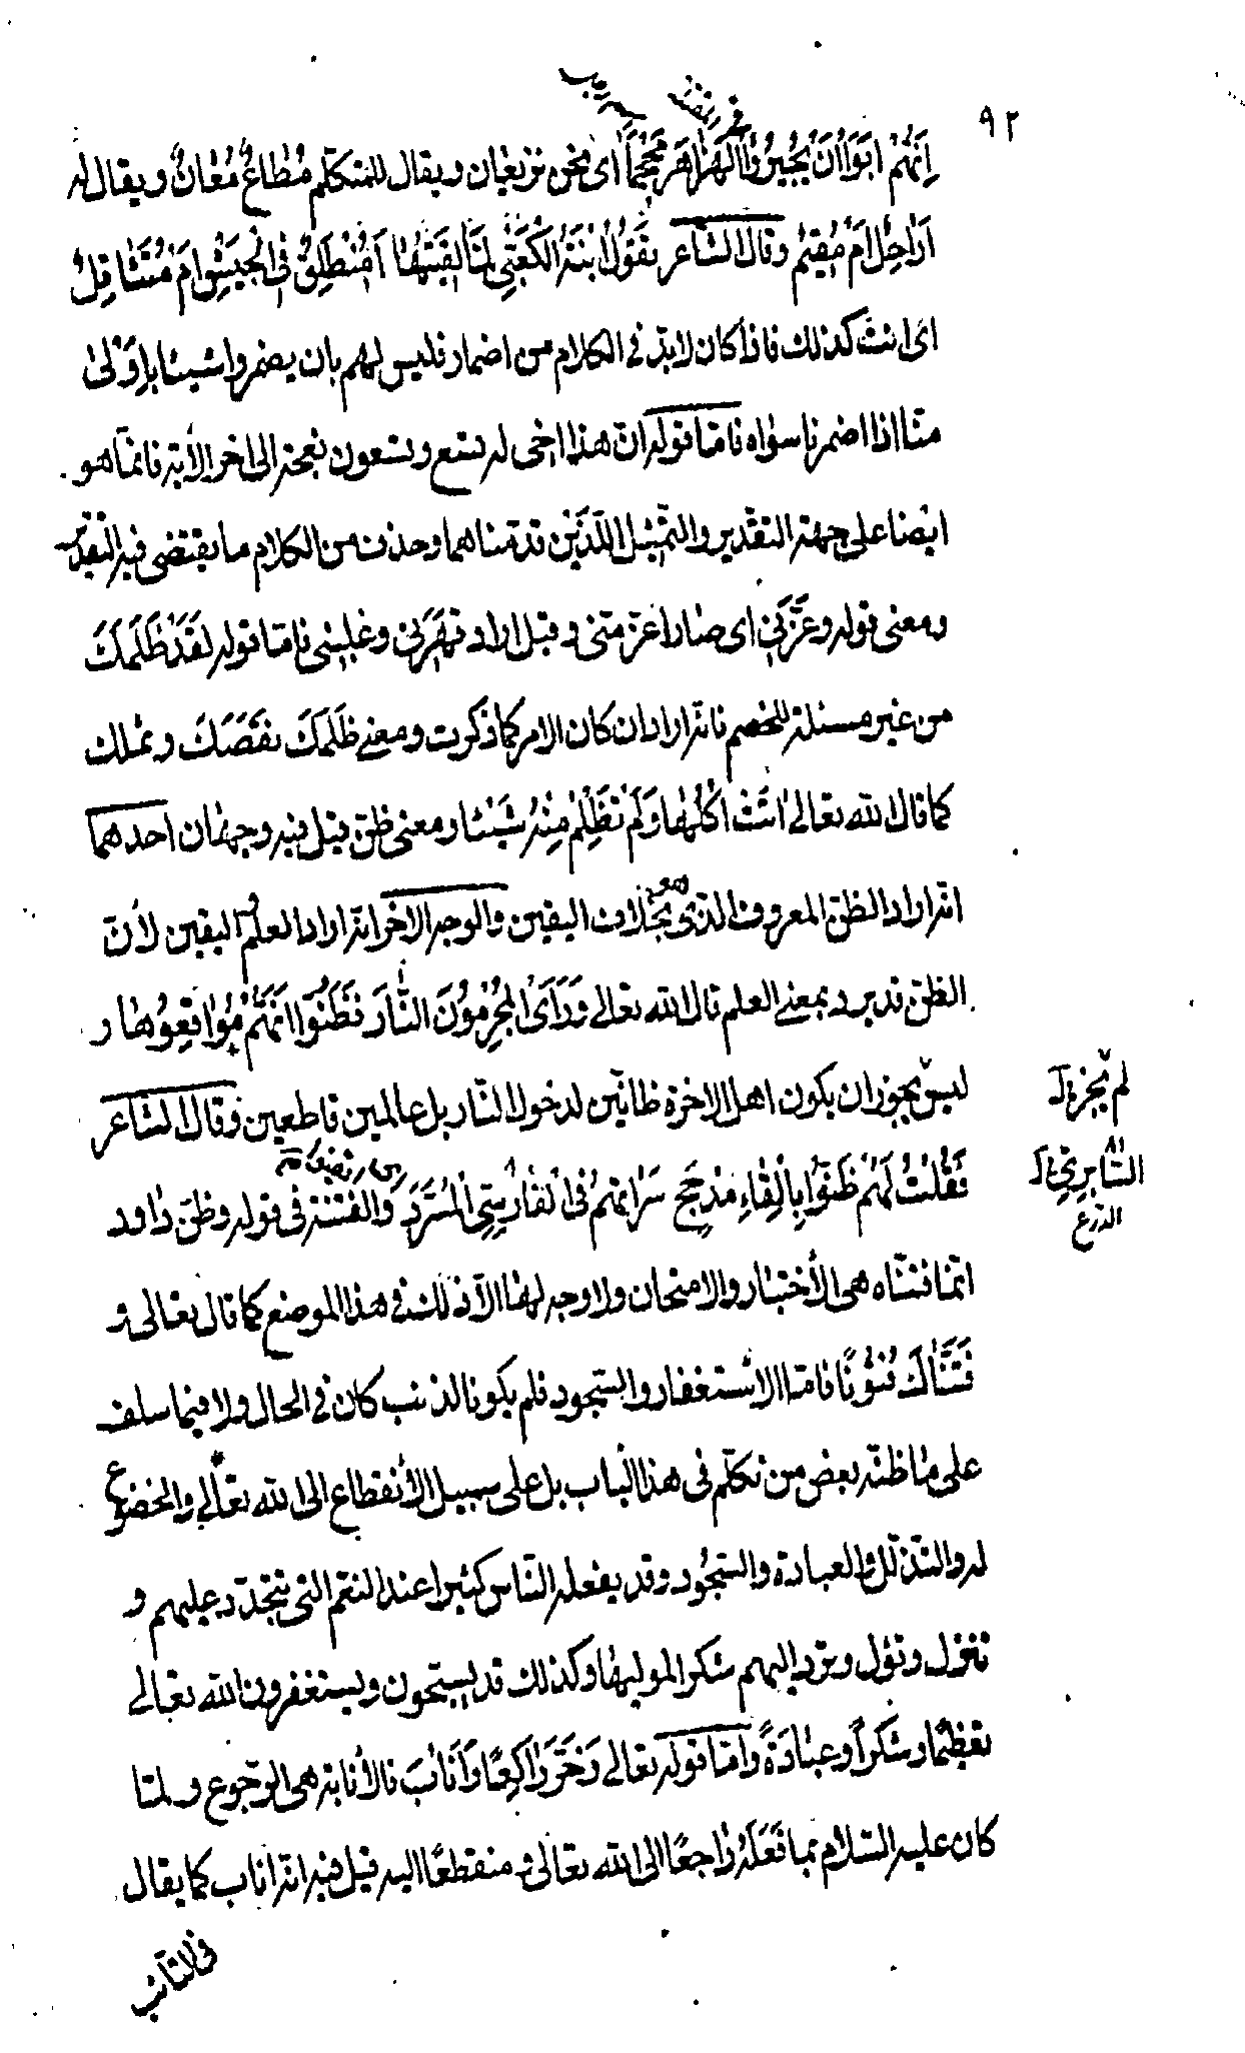 ٩٢
اِنَّهُمْ اَبَوْا اَنْ يُجِيرُوا الْهَرَاهِرَ مَحْجَمًا اى نحن نزيغان ويقال للمتكلّم مُطاعٌ مُعانٌ ويقال له
اَرَاحِلٌ اَمْ مُقِيمٌ وقال الشاعر تقُولُ ابْنَةُ الْكَعْبِيِّ لَمَّا لَقِيتُهَا اَمُنْطَلِقٌ فِى الْجَيْشِ اَمْ مُتَثَاقِلُ
اى انت كذلك فاذا كان لابدّ فى الكلام من اضمار فليس لهم بان يضمروا شيئا باِوْلَىٰ
منّا اذا اضمرنا سواه فامّا قوله انّ هذا اخى له تسع وتسعون نعجة الى اخر الأية فانّما هو
ايضا على جهة التقدير والتمثيل اللّذَيْن قدّمناهما وحذف من الكلام ما يقتضى فيه التقدير
ومعنى قوله وعَزَّنِى اى صار اعزّ منّى وقيل اراد قهرنى وغلبنى فامّا قوله لَقَدْ ظَلَمَكَ
من غير مسئلة للخصم فانّه اراد ان كان الامر كما ذكرت ومعنى ظَلَمَكَ نقَصَكَ و ثملك
كما قال الله تعالى اٰتَتْ اُكُلَهَا وَلَمْ تَظْلِمْ مِنْهُ شَيْئا ومعنى ظنّ قيل فيه وجهان احدهما
انّه اراد الظنّ المعروف الذى هو بخلاف اليقين والوجه الاخر انّه اراد العلم و اليقين لأنّ
الظنّ قد يرد بمعنى العلم قال الله تعالى وَرَأَى الْمُجْرِمُونَ النَّارَ فَظَنُّوا اَنَّهُمْ مُوَاقِعُوهَا و
ليس يجوز ان يكون اهل الاخرة ظانّين لدخول النّار بل عالمين قاطعين وقال الشاعر
لم يجز خ‌ل
فَقُلْتُ لَهُمْ ظَنُّوا بِاِلْقَاءِ مَذْحِجٍ سَرَاتُهُمْ فِى الْفَارِسِىِّ الْمُسَرَّدِ وَالفتنة فى قوله وظنّ داود
السّابرى خ‌ل
الدّرع
انّما فتنّاه هى الأختبار والامتحان ولا وجه لها الاّ ذلك فى هذا الموضع كما قال تعالى و
فَتَنَّاكَ فُتُونًا فامّا الاستغفار والسّجود فلم يكونا لذنب كان فى الحال ولا فيما سلف
على ما ظنّه بعض من تكلّم فى هذا الباب بل على سبيل الأنقطاع الى الله تعالى والخضوع
له والتذلّل والعبادة والسّجود وقد يفعله النّاس كثيرا عند النعم التى تتجدّد عليهم و
تنزل وتؤل وتردّ اليهم شكرا لموليها وكذلك قد يسبّحون ويستغفرون الله تعالى
تعظيمًا وشكرًا وعبادَةً وامّا قوله تعالى وَخَرَّ رَاكِعًا وَاَنَابَ فالأنابة هى الرّجوع ولمّا
كان عليه السّلام بما فَعَلَهُ راجعًا الى الله تعالى و منقطعًا اليه قيل فيه انّه اناب كما يقال
فى التائب